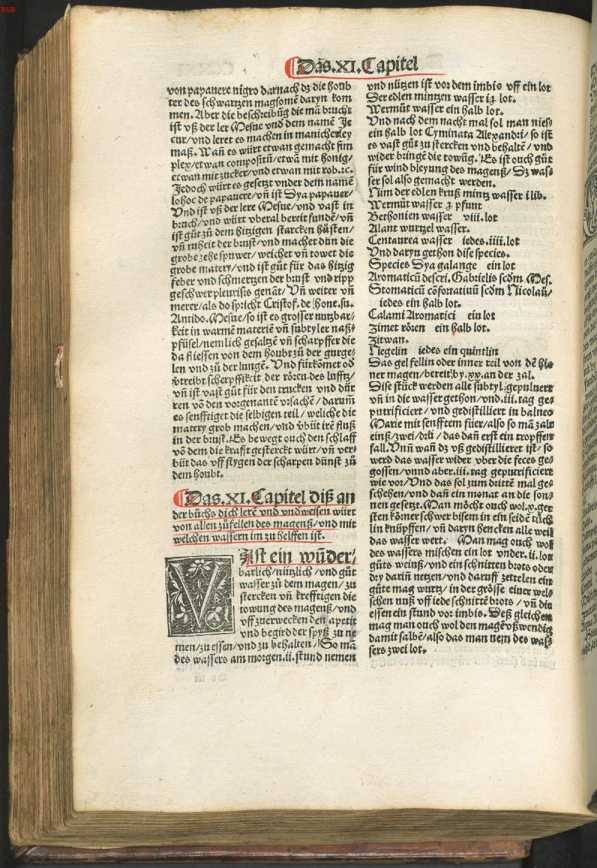 Das.XI.Capitel
von papauere nigro darnach dz die houb
ter des schwartzen magsomē daryn kom
men. Aber die beschribūg die mā brucht
ist vß der ler Mesue vnd dem namē Je
cur/vnd leret es machen in manicherley
maß. Wañ es würt etwan gemacht sim
plex/etwan compositū/etwā mit honig/
etwan mit zucker/vnd etwan mit rob.ec.
Jedoch würt es gesetzt vnder dem namē
lohoc de papauere/vñ ist Dya papauer/
Vnd ist vß der lere Mesue/vnd vast in
bruch/vnd würt vberal bereit funden/vñ
ist gůt zů dem hitzigen starcken hůsten/
vñ ruheit der brust/vnd machet dün die
grobe zehe spuwer/weichet vñ towet die
grobe matery/vnd ist gůt für das hitzig
feber vnd schmertzen der brust vnd ripp
geschwer pleurisis genāt/Vñ weiter vñ
merer/als do spricht Cristof. de hone. su.
Antido. Mesue/so ist es grosser nutzbar
keit in warmē materiē vñ subtyler naß
pfüsel/nemlich gesaltzē vñ scharpffer die
da fliessen von dem houbt zů der gurge
len vnd zů der lungē. Vnd fürkōmet oð
vtreibt scherpffikeit der rören des luffts/
vñ ist vast gůt für den trucken vnd dür
ren vō den vorgenantē vrsachē/darum̄
es senfftiget die selbigen teil/welche die
matery grob machen/vnd vbüt irē fluß
in der brust. Es bewegt ouch den schlaff
vō dem die krafft gesterckt würt/vñ ver
hüt das vff stygen der scharpen dünst zů
dem houbt.
Das.XI.Capitel diß an
der bůchs dich lerē vnd vnd weisen würt
von allen zůfellen des magenß/vnd mit
welchen wassern im zu helffen ist.
VIst ein wūder/
barlich/nützlich/vnd gůt
wasser zů dem magen/zu
stercken vñ krefftigen die
towung des magenß/vnd
vff zuerwecken den apetit
vnd begird der spyß zu ne
men/zu essen/vnd zu behalten/So mā
des wassers am morgen.ii.stund nemen
vnd nützen ist vor dem imbis vff ein lot
Der edlen mintzen wasser iʒ lot.
Wermůt wasser ein halb lot.
Vnd nach dem nacht mal sol man nieß
ein halb lot Cyminata Alexandri/so ist
es vast gůt zu stercken vnd behaltē/vnd
wider bringē die towūg. Es ist ouch gůt
für wind bleyung des magenß/Dz was
ser sol also gemacht werden.
Nim der edlen kruß mintz wasser i lib.
Wermůt wasser ʒ pfunt
Bethonien wasser viii.lot
Alant wurtzel wasser.
Centaurea wasser iedes.iiii.lot
Vnd daryn gethon dise species.
Species Dya galange ein lot
Aromaticū descri. Gabrielis scdm̄ Mes.
Stomaticū cōfortatiuū scdm̄ Nicolaū/
iedes ein halb lot.
Calami Aromatici ein lot
Zimet rören ein halb lot.
Zitwan.
Negelin iedes ein quintlin
Das gel fellin oder inner teil von dē hū
ner magen/bereit/by.xx.an der zal.
Dise stück werden alle subtyl gepuluert
vñ in die wasser gethon/vnd.iii.tag ge
purrificiert/vnd gedistilliert in balneo
Marie mit senfftem füer/also so mā zale
einß/zwei/drü/das dañ erst ein tropffen
fall. Vnn wañ dz vß gedistillieret ist/so
werd das wasser wider vber die feces ge
gossen/vnnd aber.iii.tag gepurificieret
wie vor/Vnd das sol zum drittē mal ge
schehen/vnd dañ ein monat an die son
nen gesetzt. Man möcht ouch wol.x.ger
sten kömer schwer bisem in ein seidē tüch
lin knüpffen/vñ daryn hencken alle weil
das wasser wert. Man mag ouch wol
des wassers mischen ein lot vnder.ii.lot
gůts weinß/vnd ein schnitten brots oder
dry darin netzen/vnd daruff zetrelen ein
gůte mag wurtz/in der grösse einer wels
schen nuß vff iede schnittē brots/vñ die
essen ein stund vor imbis. Deß gleichen
mag man ouch wol den magē vßwendig
damit salbē/also das man nem des was
sers zwei lot.